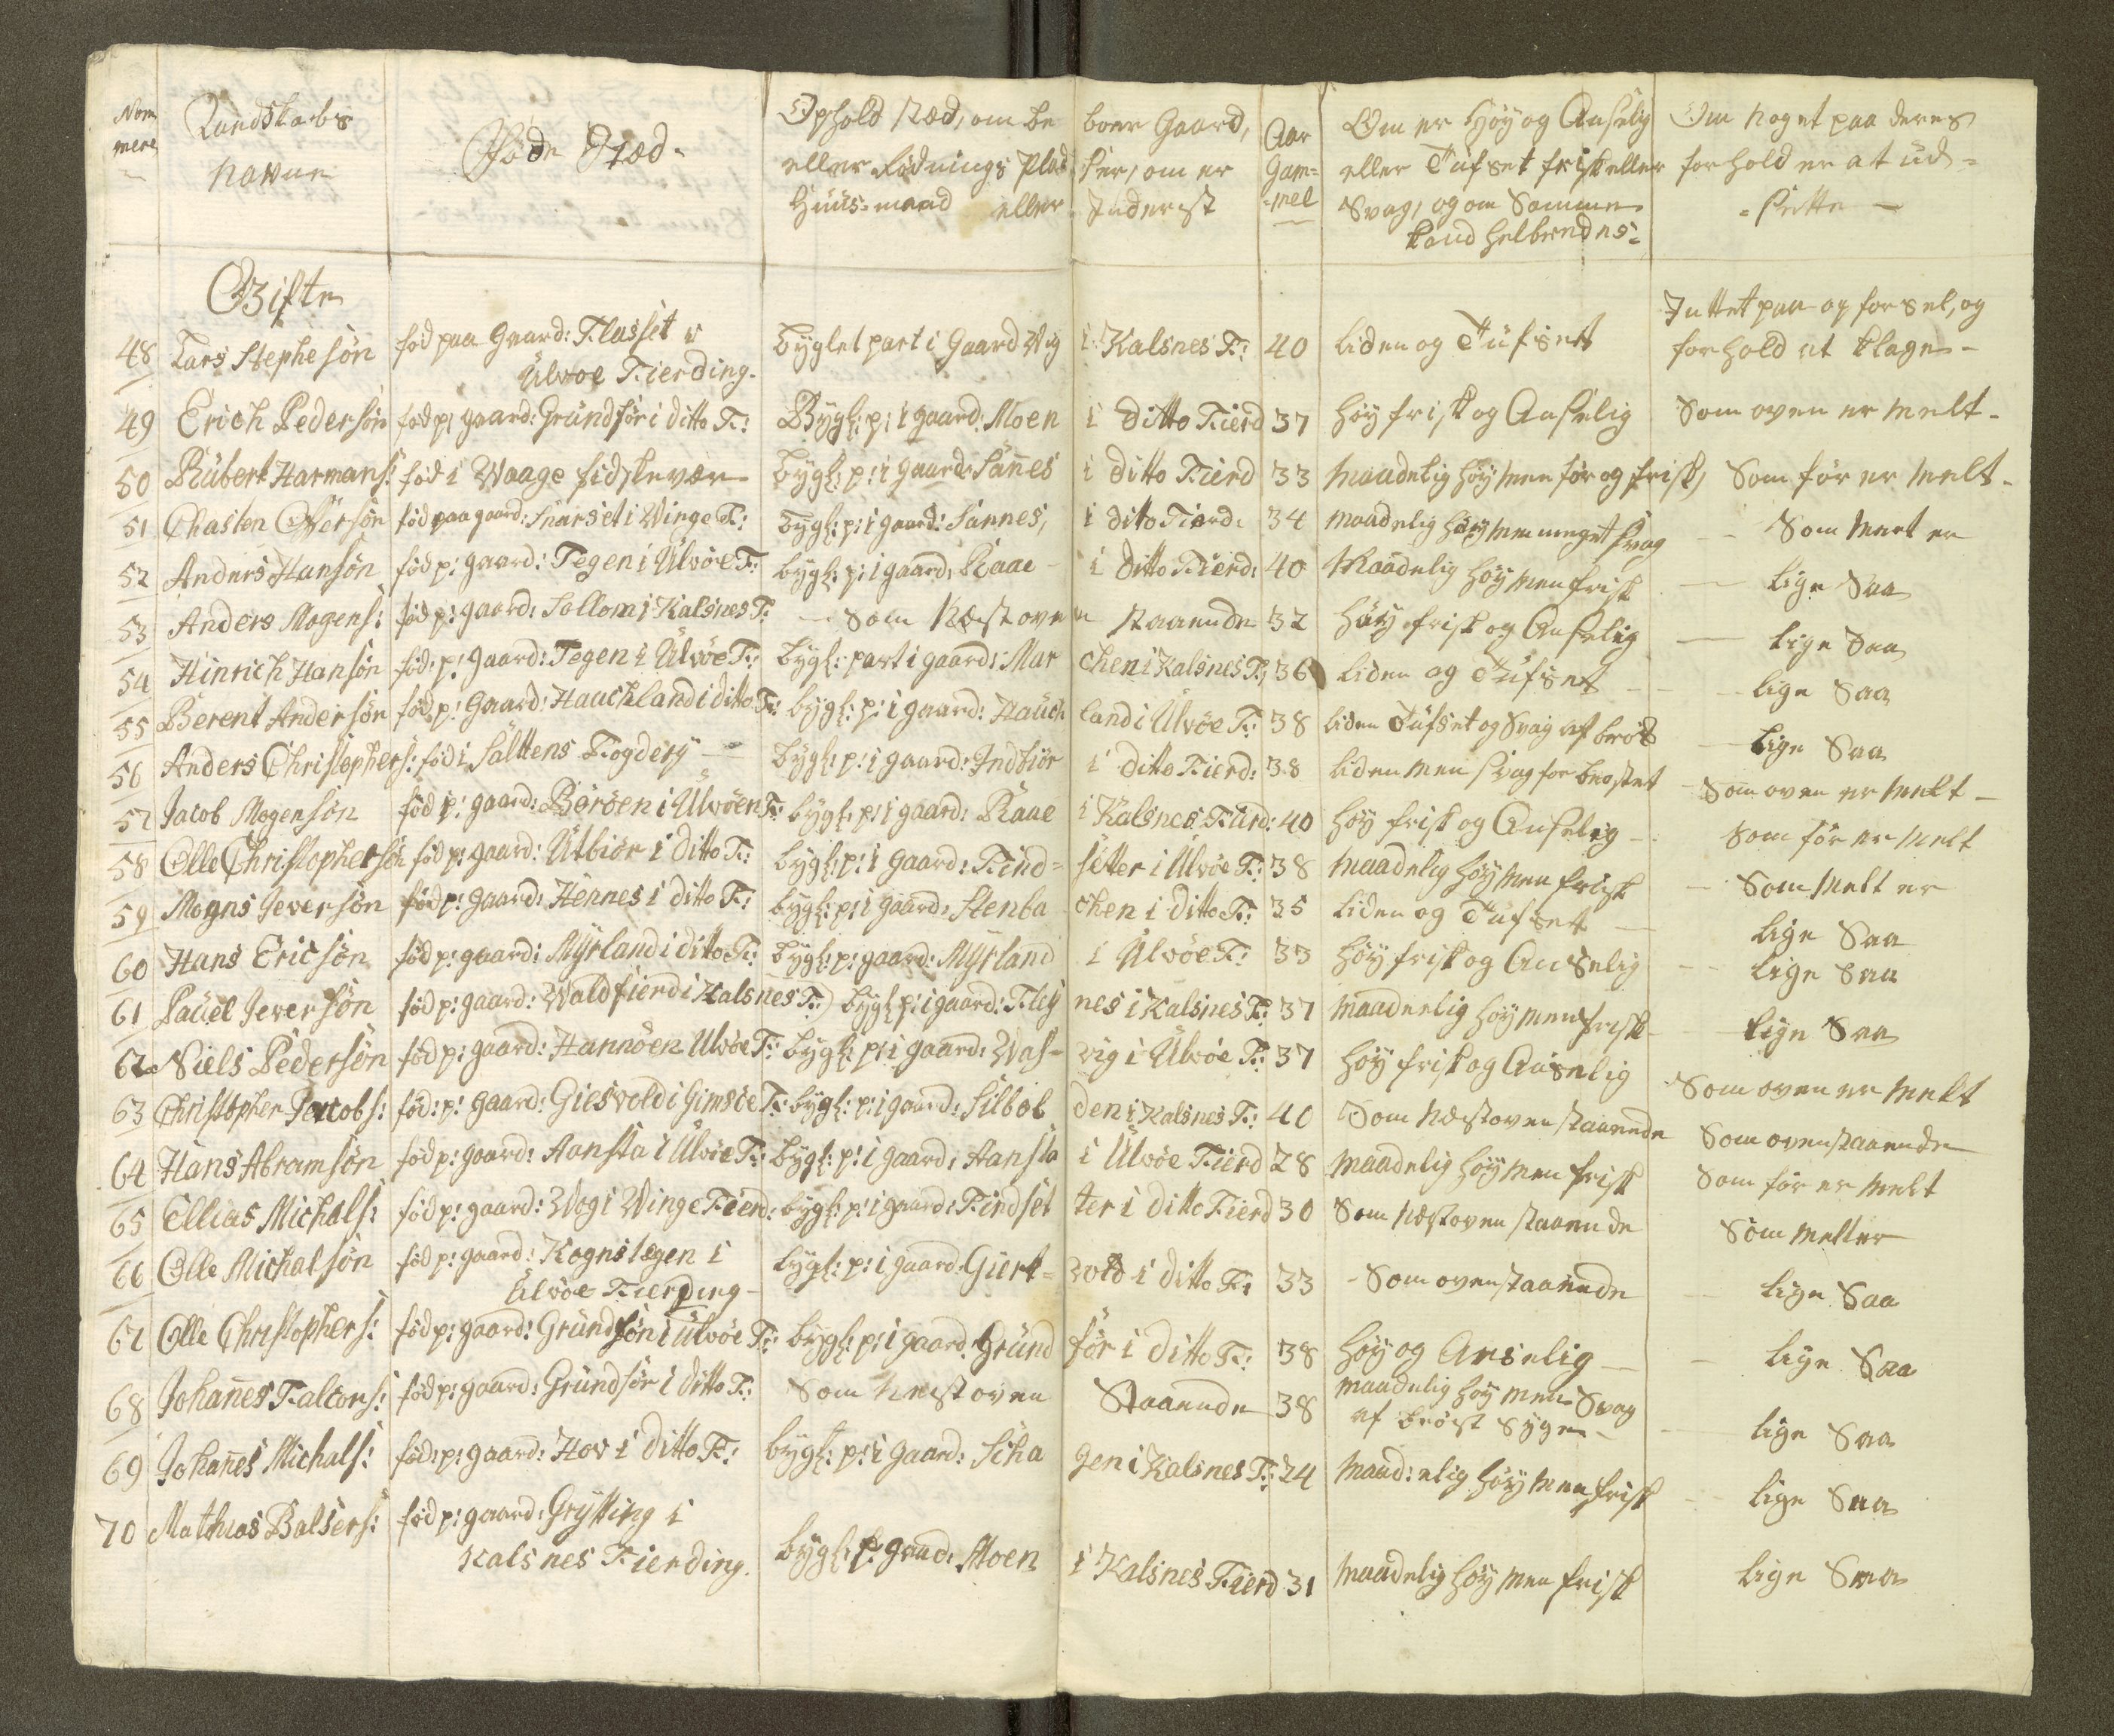 Nom mere Landskabs Opholdsted, om be boer Gaard, Aar Om er høy og Anselig Om noget paa deres
navne Føde Sted. eller Rødnings Plad ser, om er Gam= eller Tüfset frisk eller forhold er at üd=
Hüüs-mand eller Inderst =mel Svag, og om Samme =sette
kand helbredes
Gifte
48 Lars Stephesön föd paa Gaard: Flasset i Byglet part i Gaard Wig i Kalsnes F: 40 liden og Tüfset Intet paa opførsel, og
Ülvöe Fierding. forhold at klage
49 Erich Pedersön föd p: gaard: Gründför i ditto F: Bygl: p: i gaard: Moen i ditto Fierd 37 høy frisk og Anselig Som oven er melt
50 Rübert Harmans: föd i Waage fiskevær bygl: p: i gaard: Sannes i ditto Fierd 33 maadelig høy men før og frisk Som før er melt
51 Chasten Ofversön föd paa gaard: Snarset i Winge F: bygl: p: i gaard: Sannes, i dito Fierd: 34 maadelig høy men meget svag Som melt er
52 Anders Hansön föd p: gaard: Tegen i Ülvöe F: bygl: p: i gaard: Raae i ditto Fierd: 40 Maadelig høy men frisk lige Saa
53 Anders Mogens: föd p: gaard: Sollom i Kalsnes F: Som Næst oven staaende 32 høy frisk og Anselig lige Saa
54 Hinrich Hansön föd: p: gaard: Tegen i Ülvöe F: bygl: part i gaard: Mar chen i Kalsnes F: 36 liden og Tüfset lige Saa
55 Berent Andersön föd p: Gaard: Hauchland i ditto F: bygl: p: i gaard: Hauch land i Ülvöe F: 38 liden Tüfset og Svag af brøst lige Saa
56 Anders Christophers: föd i Salttens Fogdery bygl: p: i gaard: Indbiör i ditto Fierd: 38 liden men svag for brøstet Som oven er melt
57 Jacob Mogensön föd p: gaard: Böröen i Ülvöen F: bygl: p: i gaard: Raae i Kalsnes Fierd: 40 høy frisk og Anselig Som før er melt
58 Olle Christophersön föd p: gaard: Ütbiör i ditto F: bygl: p: i gaard: Find= setter i Ülvöe F: 38 maadelig høy men frisk Som melt er
59 Mogns Jversön föd p: gaard: Hennes i ditto F: bygl: p: i gaard: Stenba chen i ditto F: 35 liden og Tüfset lige Saa
60 Hans Ericsön föd p: gaard: Myrland i ditto F: bygl: p: gaard: Myrland i Ülvöe F: 33 høy frisk og Anselig lige Saa
61 Paüel Jversön föd p: gaard: Waldfierd i Kalsnes F: bygl: p: i gaard: Fley nes i Kalsnes F: 37 maadelig høy men frisk lige Saa
62 Niels Pedersön föd p: gaard: Hannöen Ülvöe F: bygl: p: i gaard: Was= vig i Ülvöe F: 37 høy frisk og Anselig Som oven er melt
63 Christopher Jacobs: föd: p: gaard: Giesvold i Gimsöe F: bygl: p: i gaard: Silbol den i Kalsnes F: 40 Som næstovenstaaende Som ovenstaaende
64 Hans Abramsön föd p: gaard: Aansta i Ülvöe F: bygl: p: i gaard: Aansta i Ülvöe Fierd 28 maadelig høy men frisk Som før er melt
65 Ellias Michals: föd p: gaard: Wog i Winge Fierd: bygl: p: i gaard: Findset ter i ditto Fierd 30 Som næstovenstaaende Som melt er
66 Olle Michalsön föd p: gaard: Kognstegen i bygl: p: i gaard: Giert= vold i ditto F: 33 Som ovenstaaende lige Saa
Ülvöe Fierding
67 Olle Christophers: föd p: gaard: Gründför i Ülvöe F: bygl: p: i gaard: Gründ för i ditto F: 38 høy og Anselig lige Saa
68 Johannes Faltors: föd p: gaard: Gründför i ditto F: Som næst oven Staaende 38 maadelig høy men Svag
af brøst syge lige Saa
69 Johannes Michals: föd: p: gaard: Hov i ditto F: bygl: p: i gaard: Scha gen i Kalsnes F: 24 maad:elig høy men frisk lige Saa
70 Mathias Balsers: föd p: gaard: Grytting i
Kalsnes Fierding. bygl: p: gaard: Moen i Kalsnes Fierd 31 maadelig høy men frisk lige Saa